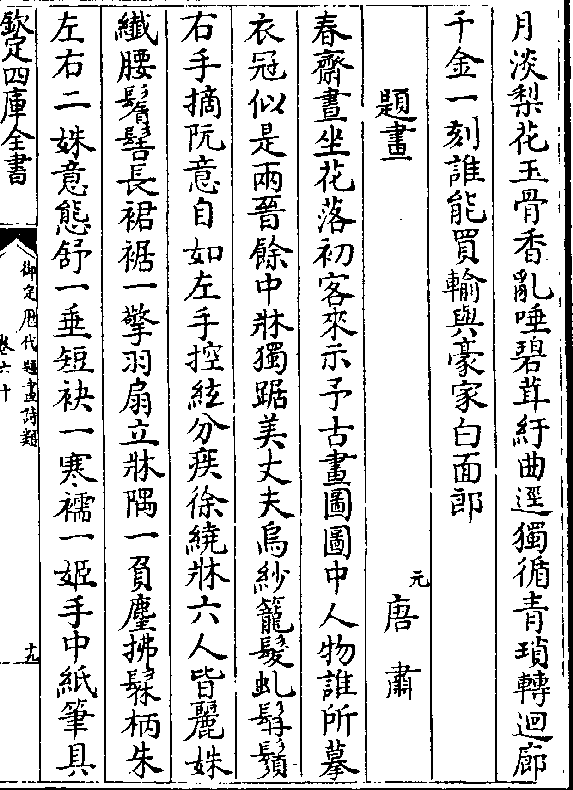 月淡梨花玉骨香亂唾碧茸紆曲逕獨循青瑣轉迴廊
千金一刻誰能買輸與豪家白面郎
題畫
元唐肅
春齋晝坐花落初客來示予古畫圖圖中人物誰所摹
衣冠似是兩晉餘中牀獨踞美丈夫烏紗籠髮虬髯鬚
右手摘阮意自如左手控絃分疾徐繞牀六人皆麗姝
纖腰鬅髻長裙裾一擎羽扇立牀隅一負麈拂髹柄朱
左右二姝意態舒一垂短袂一寒襦一姬手中紙筆具
欽定四庫全書
御定歷代題畫詩類
卷六十
十九